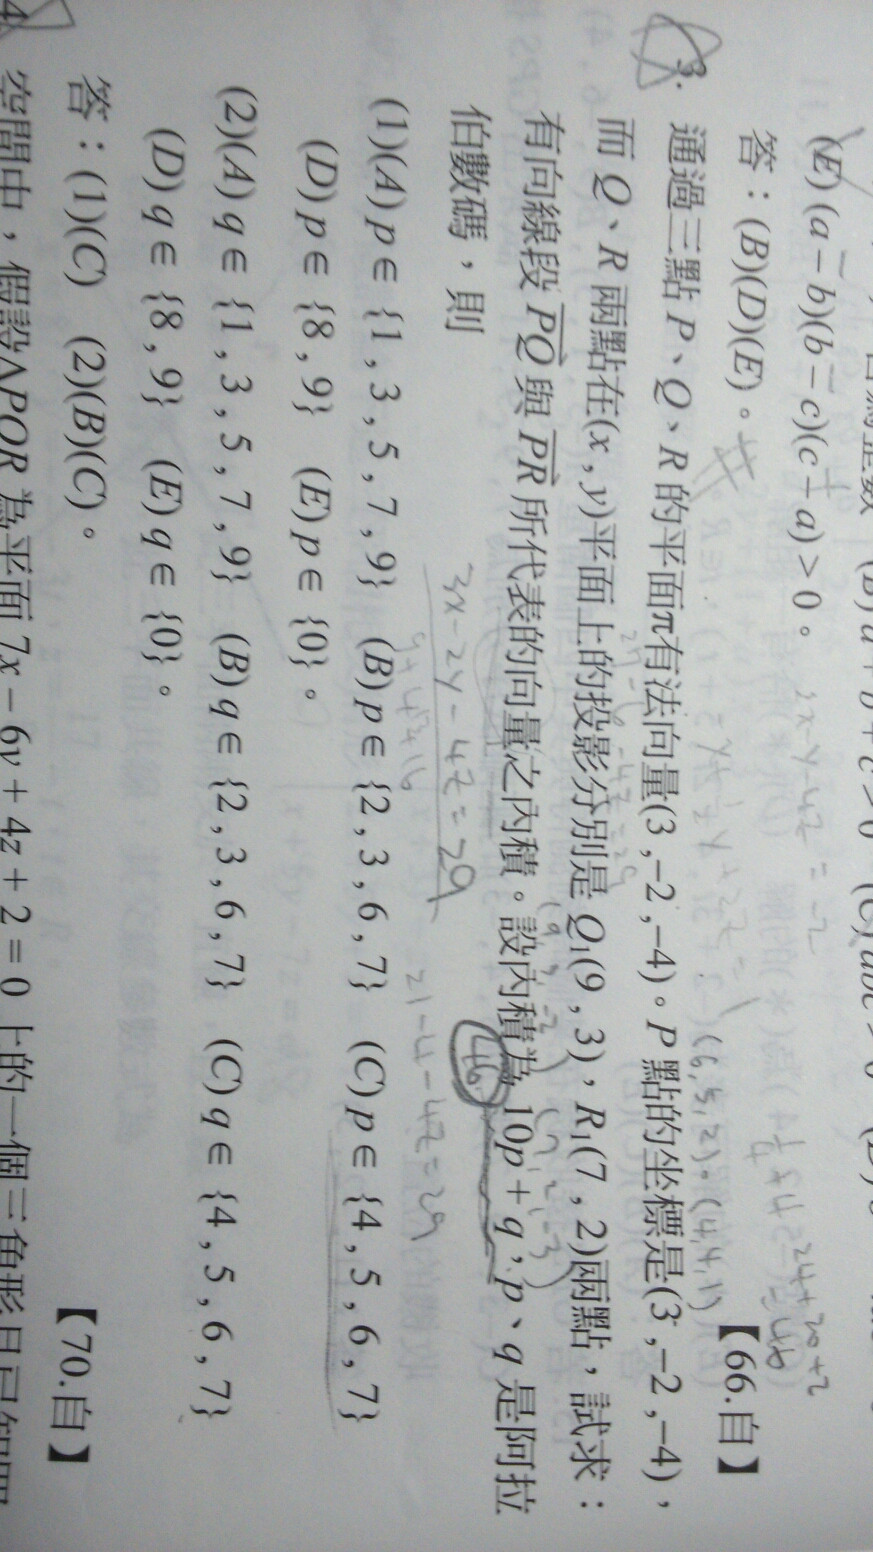 (E) (a－b)(b－c)(c－a)＞0。
答：(B)(D)(E)。
【66.自】
3. 通過三點 P、Q、R 的平面π有法向量(3 ,−2 ,−4)。P 點的坐標是(3 ,−2 ,−4)，
而 Q、R 兩點在(x , y)平面上的投影分別是 Q₁(9 , 3)，R₁(7 , 2)兩點，試求：
有向線段 PQ 與 PR 所代表的向量之內積。設內積為 10p + q，p、q 是阿拉
伯數碼，則
46
3x−2y−4z=29
21−4−4z=29
(1)(A) p∈{1 , 3 , 5 , 7 , 9} (B) p∈{2 , 3 , 6 , 7} (C) p∈{4 , 5 , 6 , 7}
(D) p∈{8 , 9} (E) p∈{0}。
(2)(A) q∈{1 , 3 , 5 , 7 , 9} (B) q∈{2 , 3 , 6 , 7} (C) q∈{4 , 5 , 6 , 7}
(D) q∈{8 , 9} (E) q∈{0}。
答：(1)(C) (2)(B)(C)。
【70.自】
4. 空間中，假設△PQR 為平面 7x − 6y + 4z + 2 = 0 上的一個三角形且已知